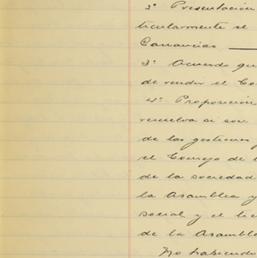 2º Presentacion
ticularmente se
Canancias
3º Acuerdo que
de vender el Co
4º Proposicion
resuelva si son
de las gestiones
el Consejo de
de la sociedad
la Asamblea y
social y el
de la Asamble
No habiendo